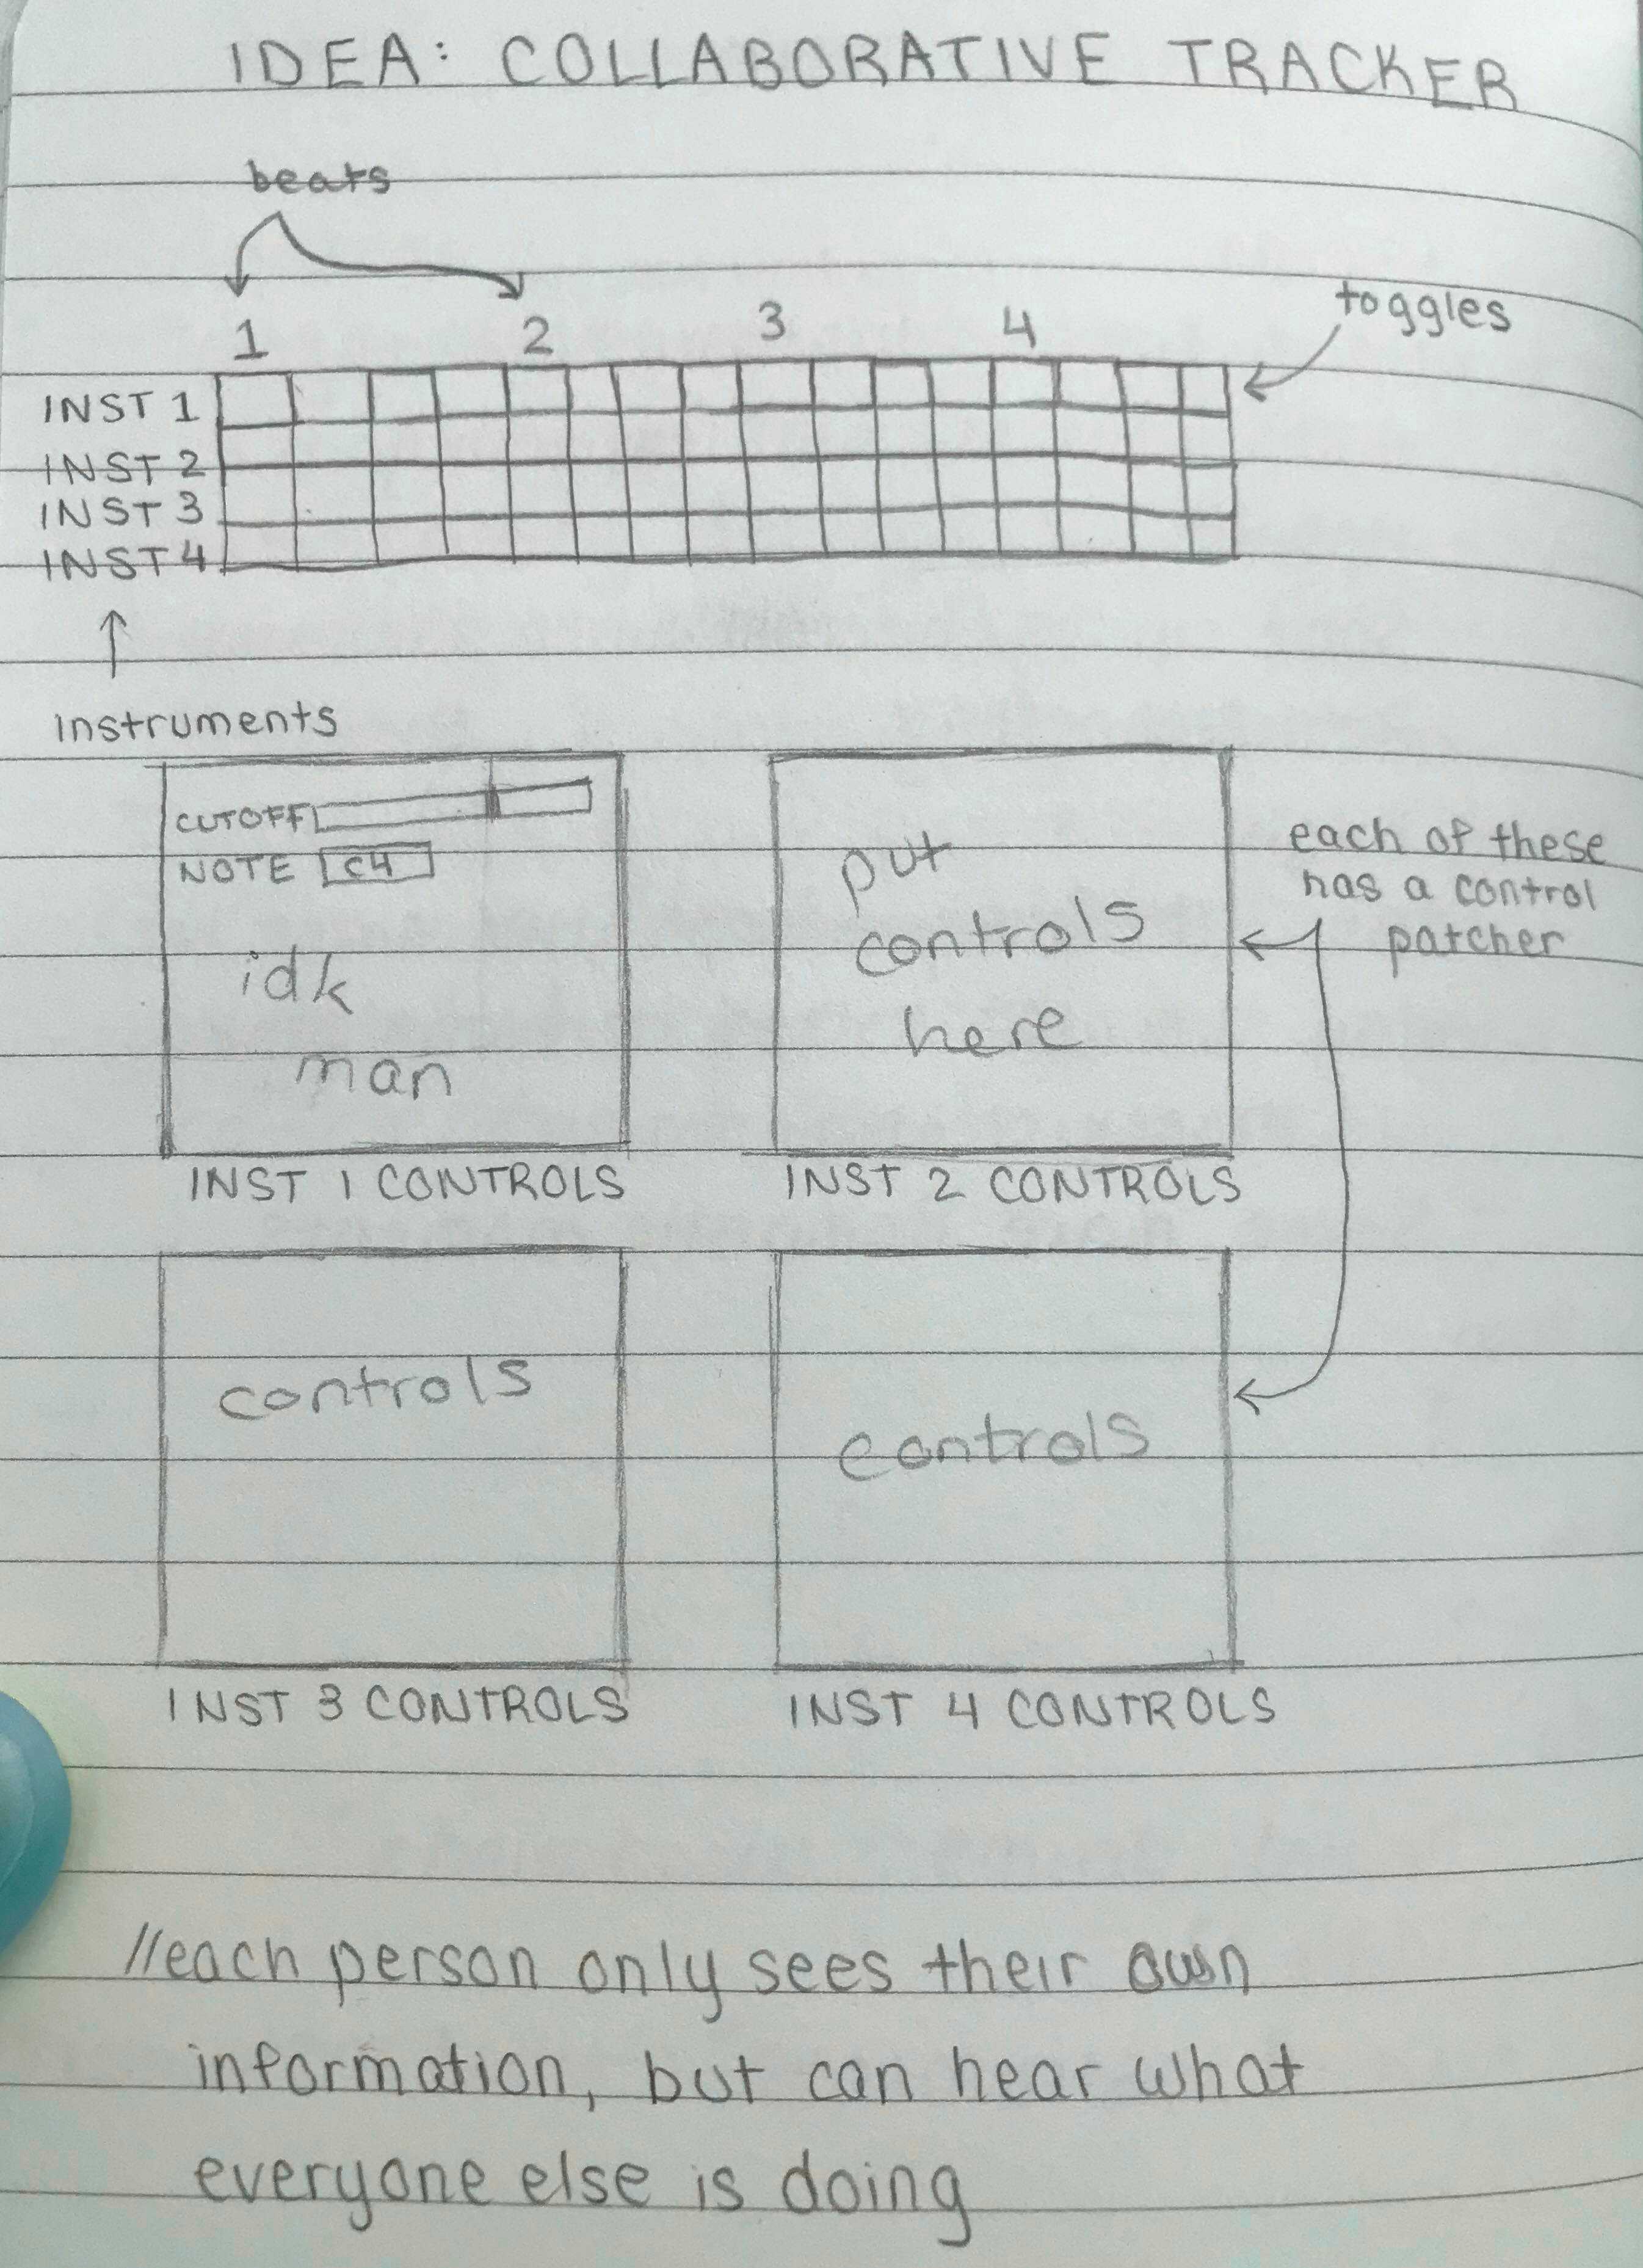 IDEA: COLLABORATIVE TRACKER
beats
toggles
1 2 3 4
INST 1
INST 2
INST 3
INST 4
instruments
CUTOFF
NOTE C4
idk
man
INST 1 CONTROLS
put
controls
here
INST 2 CONTROLS
each of these
has a control
patcher
controls
INST 3 CONTROLS
controls
INST 4 CONTROLS
//each person only sees their own
information, but can hear what
everyone else is doing